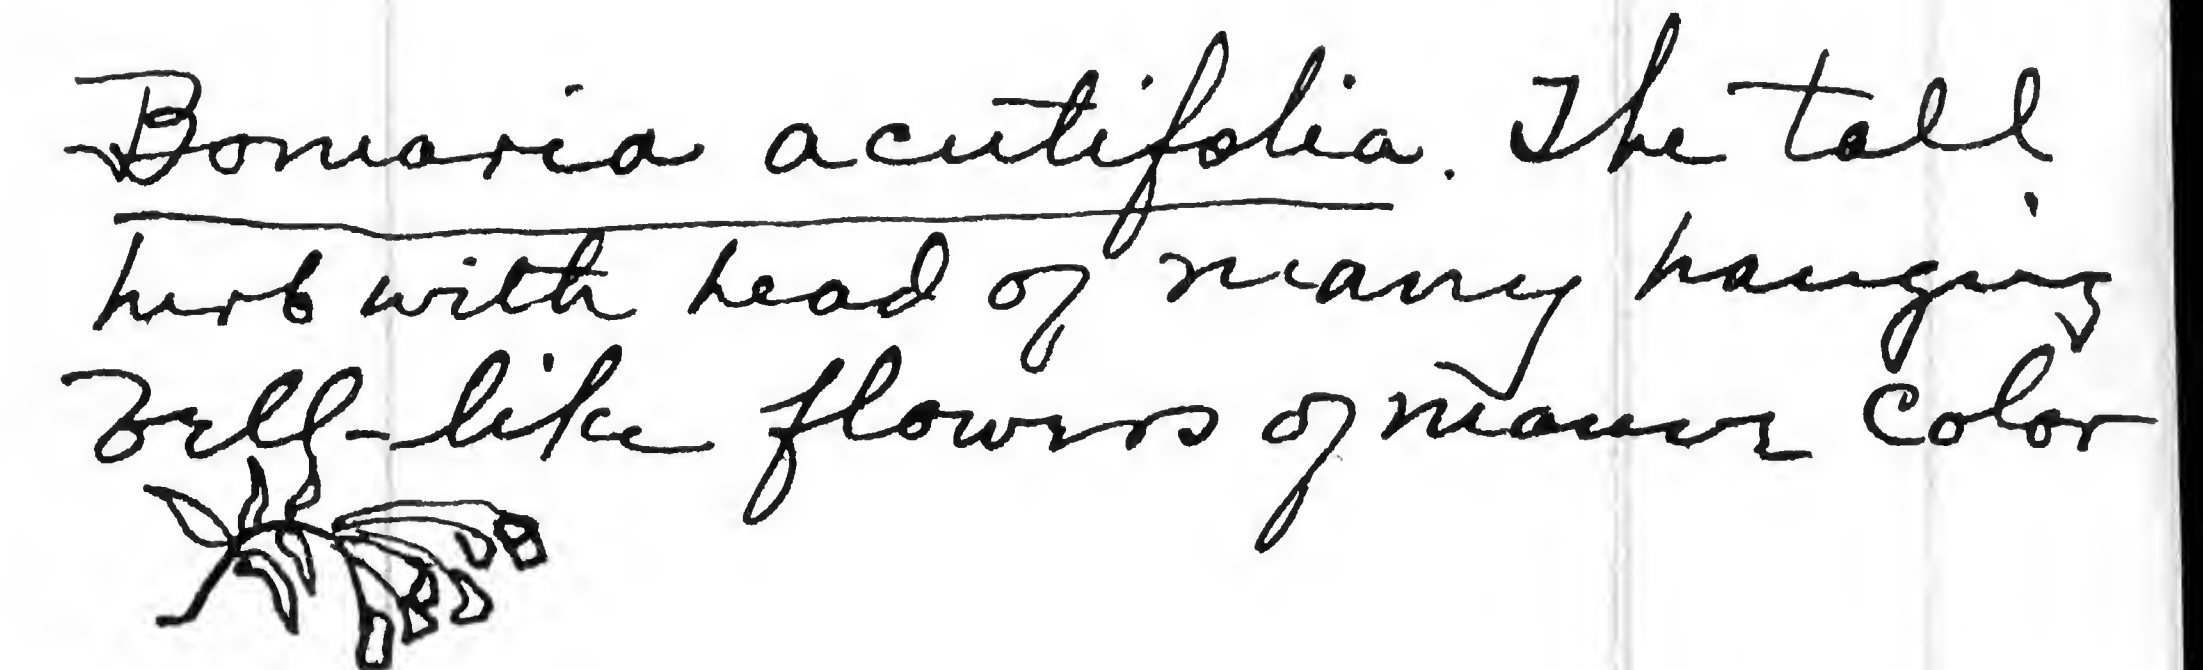 Bomaria acutifolia. The tall
herb with head of many hanging
bell-like flowers of mauve color